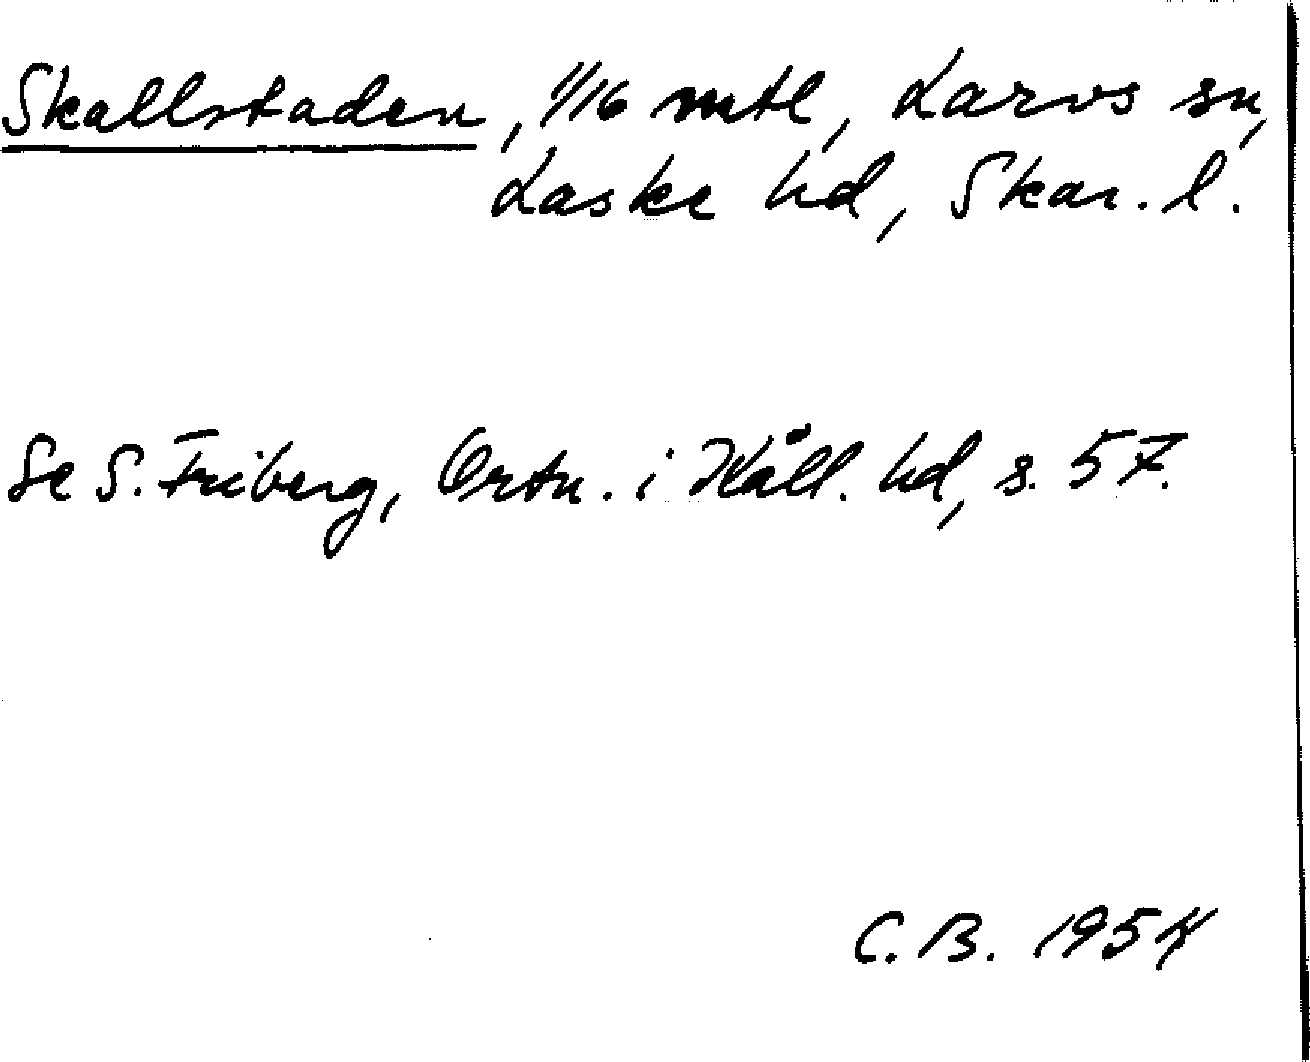 Skallstaden, 1/16 mtl, Larvs sn,
Laske hd, Skar. l.
Se S. Friberg, Ortn. i Kåll. hd, s. 57.
C. B. 1954